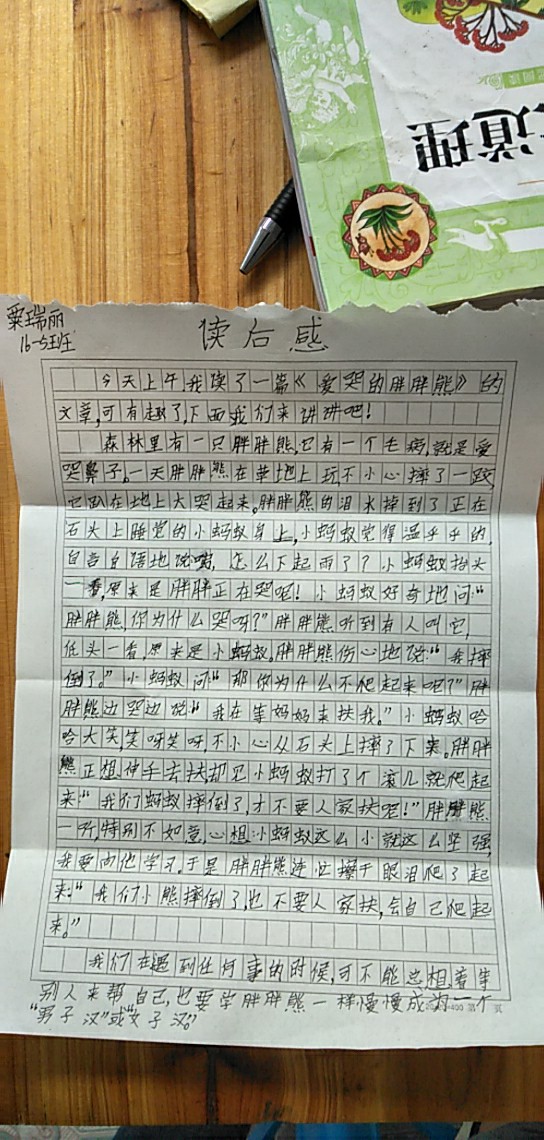 道理
粟瑞丽
16-5班
读后感
今天上午,我读了一篇《爱哭的胖胖熊》的
文章,可有趣了,下面我们来讲讲吧!
森林里有一只胖胖熊,它有一个毛病,就是爱
哭鼻子。一天胖胖熊在草地上玩不小心摔了一跤,
它趴在地上大哭起来。胖胖熊的泪水掉到了正在
石头上睡觉的小蚂蚁身上,小蚂蚁觉得温乎乎的,
自言自语地说:"嘴,怎么下起雨了?小蚂蚁抬头
一看,原来是胖胖正在哭呢!小蚂蚁好奇地问:"
胖胖熊,你为什么哭呀?"胖胖熊听到有人叫它,
低头一看,原来是小蚂蚁。胖胖熊伤心地说:"我摔
倒了。"小蚂蚁问:"那你为什么不爬起来呢?"胖
胖熊边哭边说:"我在等妈妈来扶我。"小蚂蚁哈
哈大笑,笑呀笑呀,不小心从石头上摔了下来。胖胖
熊正想伸手去扶却见小蚂蚁打了个滚儿就爬起
来:"我们蚂蚁摔倒了,才不要人家扶呢!"胖胖熊
一听,特别不如意,心想:小蚂蚁这么小就这么坚强,
我要向他学习。于是胖胖熊连忙擦干眼泪爬了起
来:"我们小熊摔倒了,也不要人家扶,会自己爬起
来。"
我们在遇到任何事的时候,可不能总想着等
别人来帮自己,也要学胖胖熊一样慢慢成为一个
"男子汉"或"女子汉"。